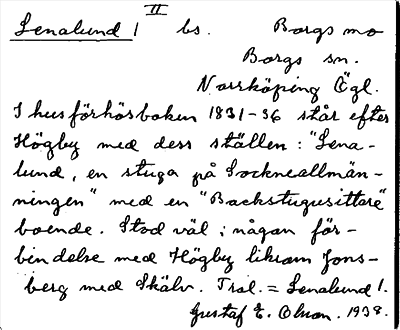 II
Lenalund 1 bs. Borgs mo
Borgs sn.
Norrköping Ögl.
I husförhörsboken 1831-36 står efter
Högby med dess ställen: "Lena-
lund, en stuga på Sockneallmän-
ningen" med en "Backstugusittare"
boende. Stod väl i någon för-
bindelse med Högby liksom Jons-
berg med Skälv. Trol. = Lenalund 1.
Gustaf E. Olson. 1938.